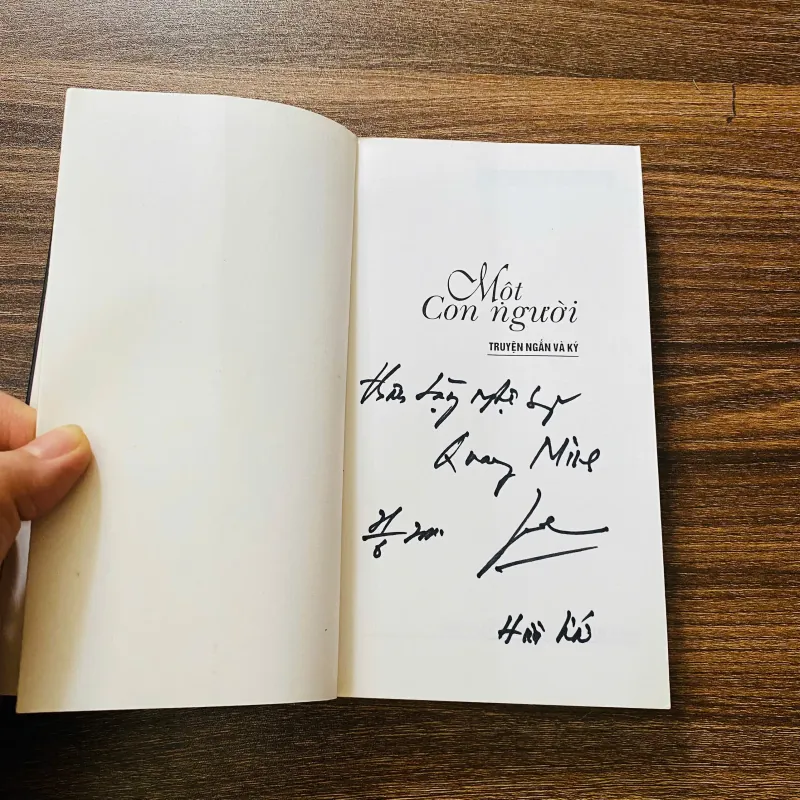 Một
Con người
TRUYỆN NGẮN VÀ KÝ
Thân tặng nghệ sỹ
Quang Minh
21/6